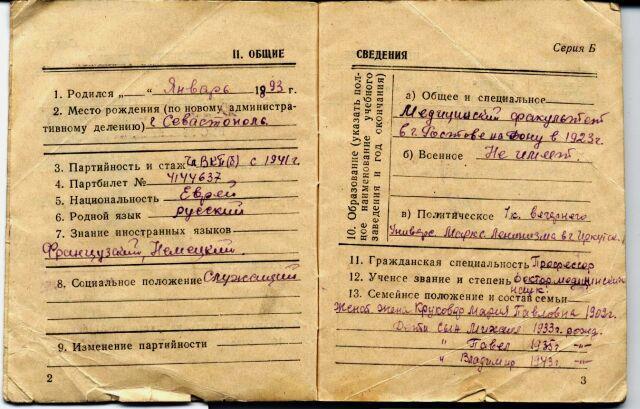 II. ОБЩИЕ
1. Родился „—“ Январь 1893 г.
2. Место рождения (по новому администра-
тивному делению) г. Севастополь
3. Партийность и стаж Чл ВКП(б) с 1941 г.
4. Партбилет № 4144637
5. Национальность Еврей
6. Родной язык русский
7. Знание иностранных языков
Французский, Немецкий.
8. Социальное положение Служащий
9. Изменение партийности
2
СВЕДЕНИЯ
Серия Б
10. Образование (указать пол-
ное наименование учебного
заведения и год окончания)
а) Общее и специальное
Медицинский факультет
в г. Ростове на Дону в 1923 г.
б) Военное Не имеет.
в) Политическое 1 к. вечернего
Универс. Маркс Ленинизма в г Иркутске
11. Гражданская специальность Профессор
12. Ученое звание и степень Доктор медицинских
наук.
13. Семейное положение и состав семьи
Женат жена Мария Павловна 1903 г.
Дети Сын Михаил 1933 г. рожд.
" Павел 1935 г. —"—
" Владимир 1943 г. —"—
3